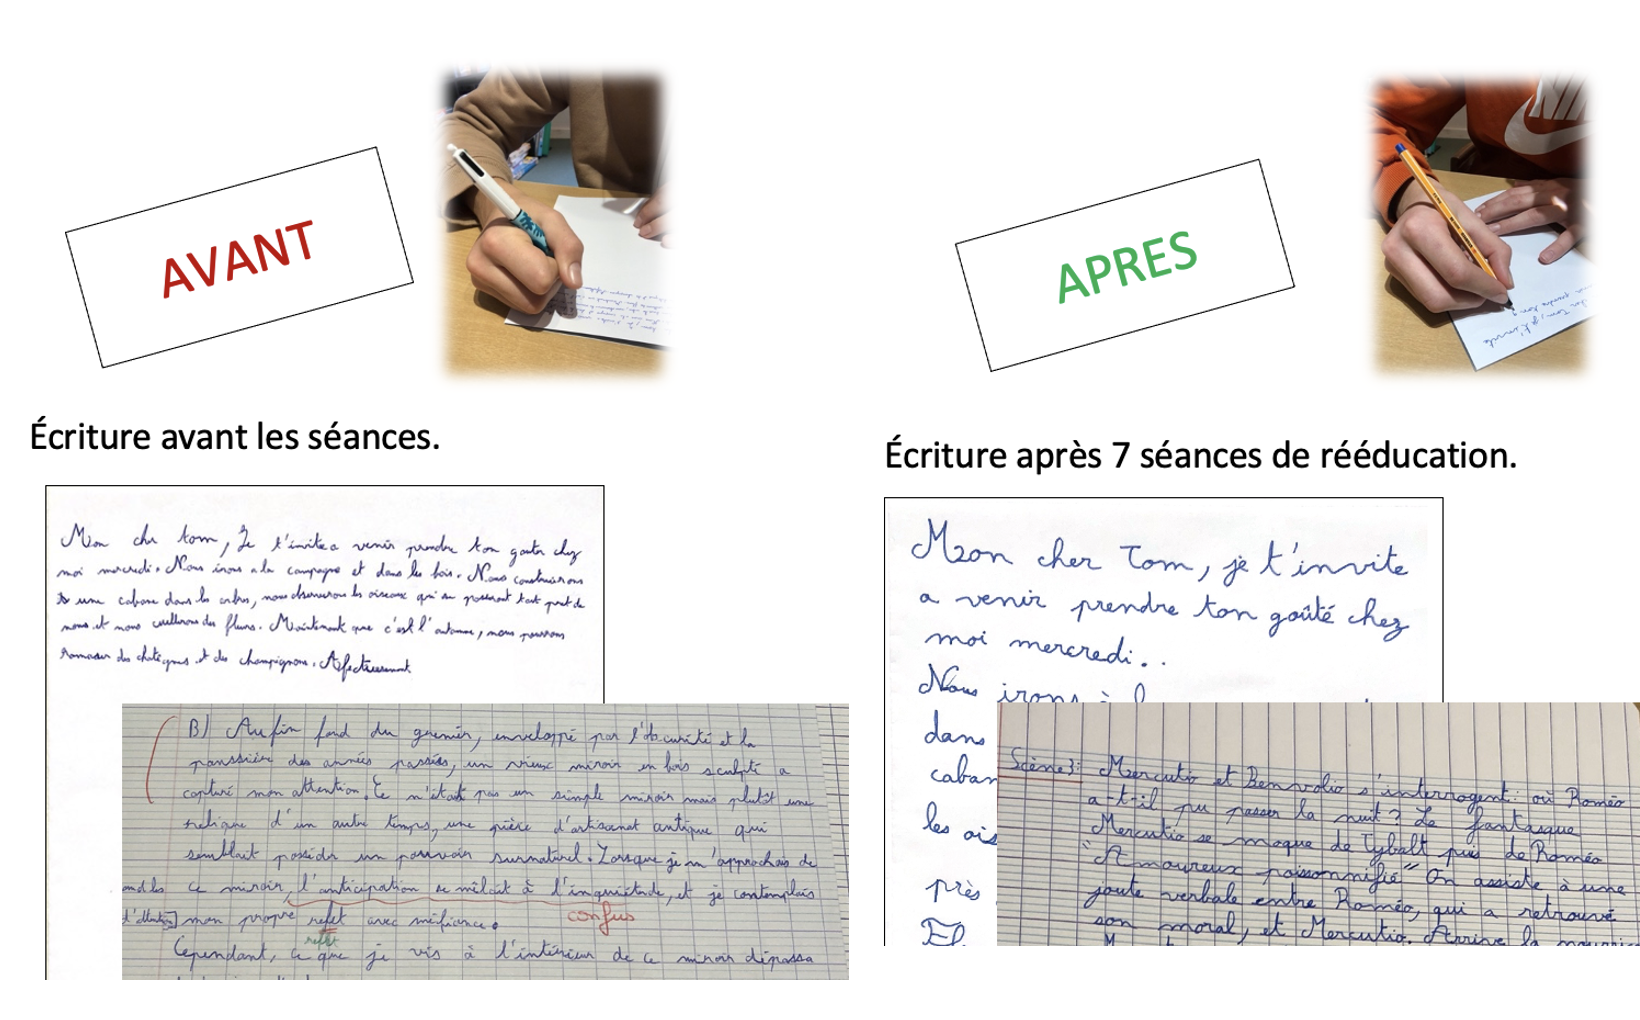 AVANT
Écriture avant les séances.
Mon cher tom, Je t'invite a venir prendre ton gouter chez
moi mercredi. Nous irons a la campagne et dans les bois. Nous construirons
une cabane dans les arbres, nous observerons les oiseaux qui se poseront tout pret de
nous et nous cueillerons des fleurs. Maintenant que c'est l'automne, nous pourrons
ramasser des chataignes et des champignons. Affectueusement
B) Au fin fond du grenier, enveloppé par l'obscurité et la
poussière des années passées, un vieux miroir en bois sculpté a
capturé mon attention. Ce n'était pas un simple miroir mais plutôt une
relique d'un autre temps, une pièce d'artisanat antique qui
semblait posséder un pouvoir surnaturel. Lorsque je m'approchais de
ce miroir, l'anticipation se mêlait à l'inquiétude, et je contemplais
mon propre refet avec méfiance.
confus
reflet
Cependant, ce que je vis à l'intérieur de ce miroir dépassa
APRES
Écriture après 7 séances de rééducation.
Mon cher Tom, je t'invite
a venir prendre ton goûté chez
moi mercredi..
Nous irons à l
dans
caban
les ois
près
Scène 3: Mercutio et Benvolio s'interrogent: où Roméo
a-t-il pu passer la nuit? Le fantasque
Mercutio se moque de Tybalt puis de Roméo
"Amoureux poissonnifié" On assiste à une
joute verbale entre Roméo, qui a retrouvé
son moral, et Mercutio. Arrive la nourric